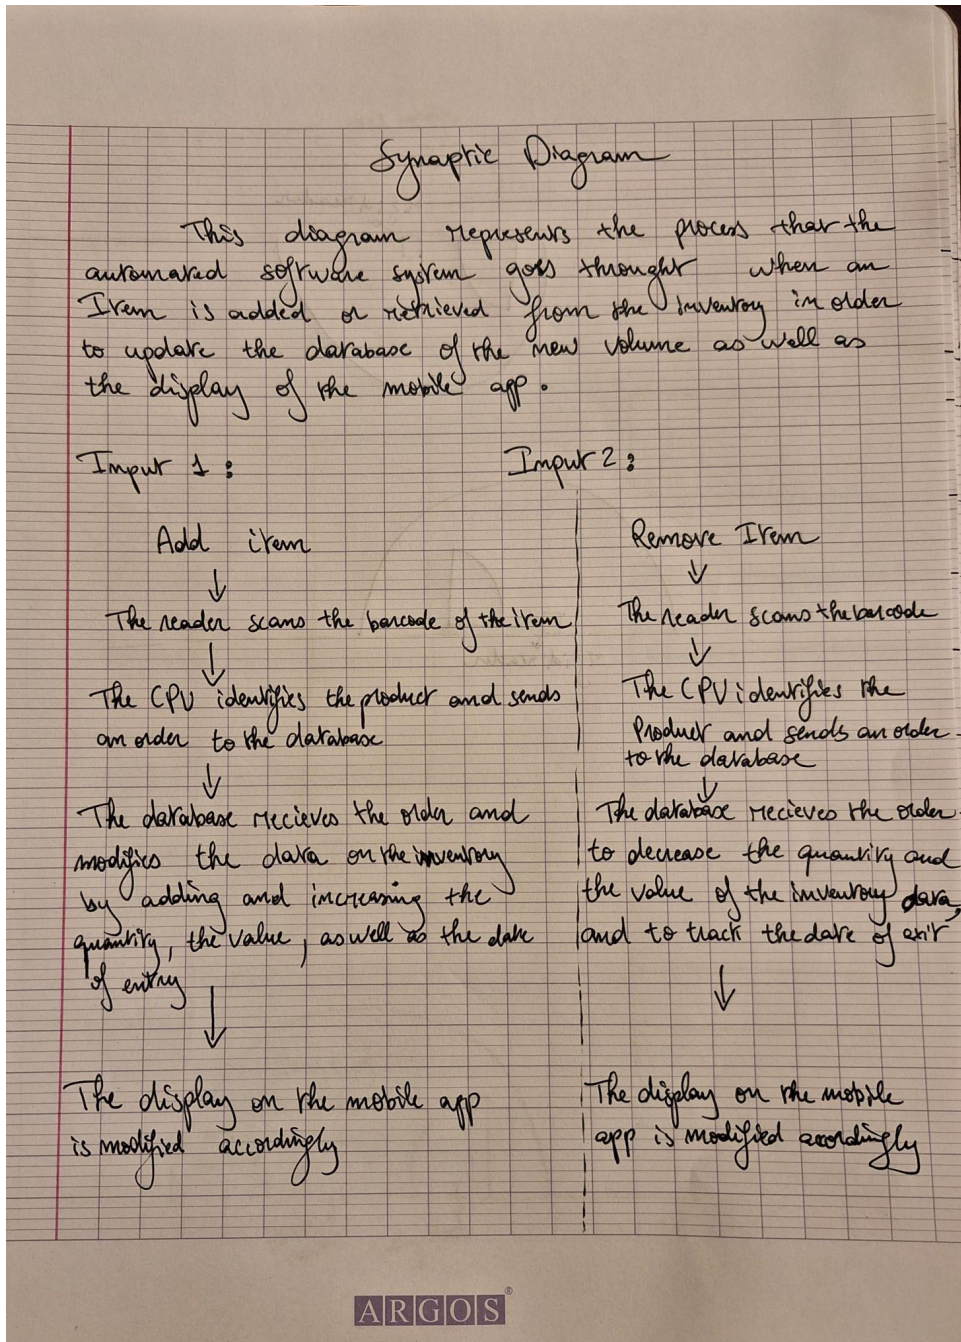 Synaptic Diagram
This diagram represents the process that the
automated software system goes throught when an
Item is added or retrieved from the inventory in order
to update the database of the new volume as well as
the display of the mobile app.
Input 1 :
Add item
↓
The reader scans the barcode of the item
↓
The CPU identifies the product and sends
an order to the database
↓
The database recieves the order and
modifies the data on the inventory
by adding and increasing the
quantity, the value, as well as the date
of entry
↓
The display on the mobile app
is modified accordingly
Input 2 :
Remove Item
↓
The reader scans the barcode
↓
The CPU identifies the
Product and sends an order
to the database
↓
The database recieves the order
to decrease the quantity and
the value of the inventory data,
and to track the date of exit
↓
The display on the mobile
app is modified accordingly
ARGOS®